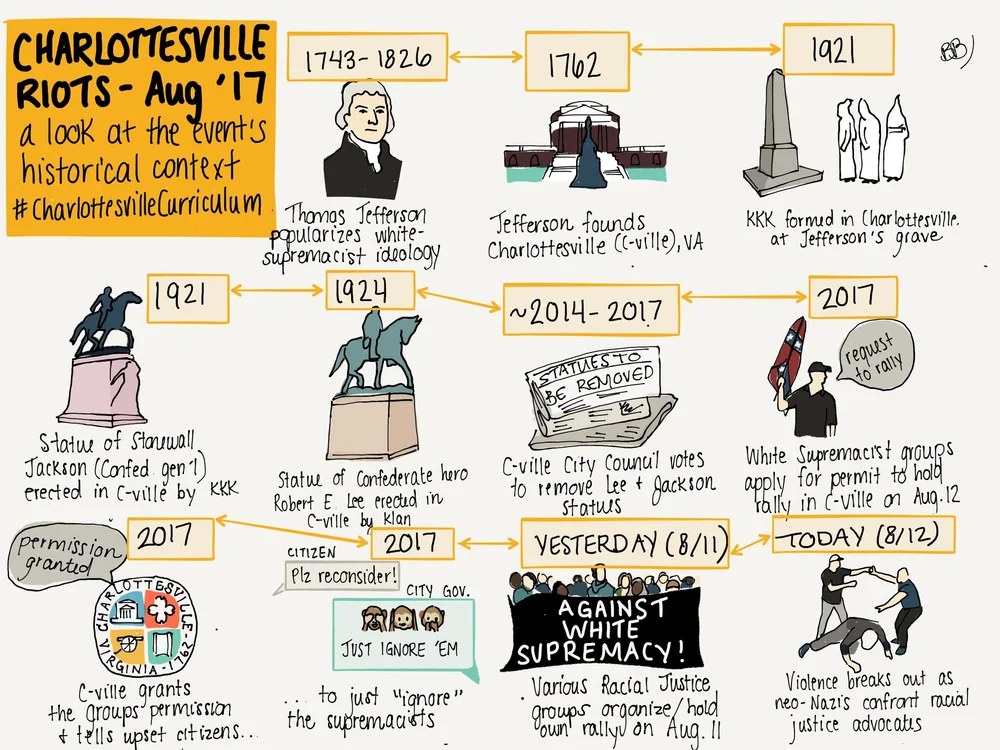 CHARLOTTESVILLE
RIOTS - Aug '17
a look at the event's
historical context
#CharlottesvilleCurriculum
1743-1826
Thomas Jefferson
popularizes white-
supremacist ideology
1762
Jefferson founds
Charlottesville (C-ville), VA
1921
KKK formed in Charlottesville.
at Jefferson's grave
RB
1921
Statue of Stonewall
Jackson (Confed. gen'l)
erected in C-ville by KKK
1924
Statue of Confederate hero
Robert E. Lee erected in
C-ville by klan
~2014-2017
STATUES TO
BE REMOVED
C-ville City Council votes
to remove Lee + Jackson
statues
2017
request
to rally
White Supremacist groups
apply for permit to hold
rally in C-ville on Aug. 12
permission
granted
2017
CHARLOTTESVILLE
VIRGINIA-1762
C-ville grants
the groups permission
+ tells upset citizens...
2017
CITIZEN
Plz reconsider!
CITY GOV.
JUST IGNORE 'EM
... to just "ignore"
the supremacists
YESTERDAY (8/11)
AGAINST
WHITE
SUPREMACY!
Various Racial Justice
groups organize/hold
own rally on Aug. 11
TODAY (8/12)
Violence breaks out as
neo-Nazis confront racial
justice advocates